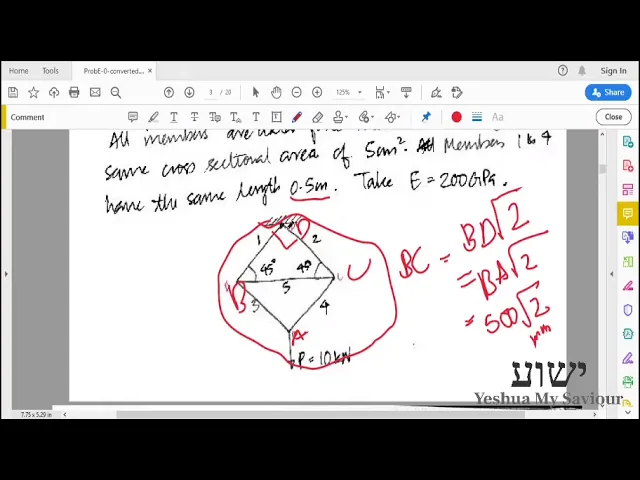 Home Tools ProbE-0-converted... × Sign In
3 / 20 125% Share
Comment Close
All members are
same cross sectional area of 5cm². All Members 1 to 4
have the same length 0.5m. Take E = 200GPa.
D
1 2
45° 45°
B 5 C
3 4
A
P = 10kN
BC = BD√2
= BA√2
= 500√2
mm
ישוע
Yeshua My Saviour
7.73 x 5.29 in